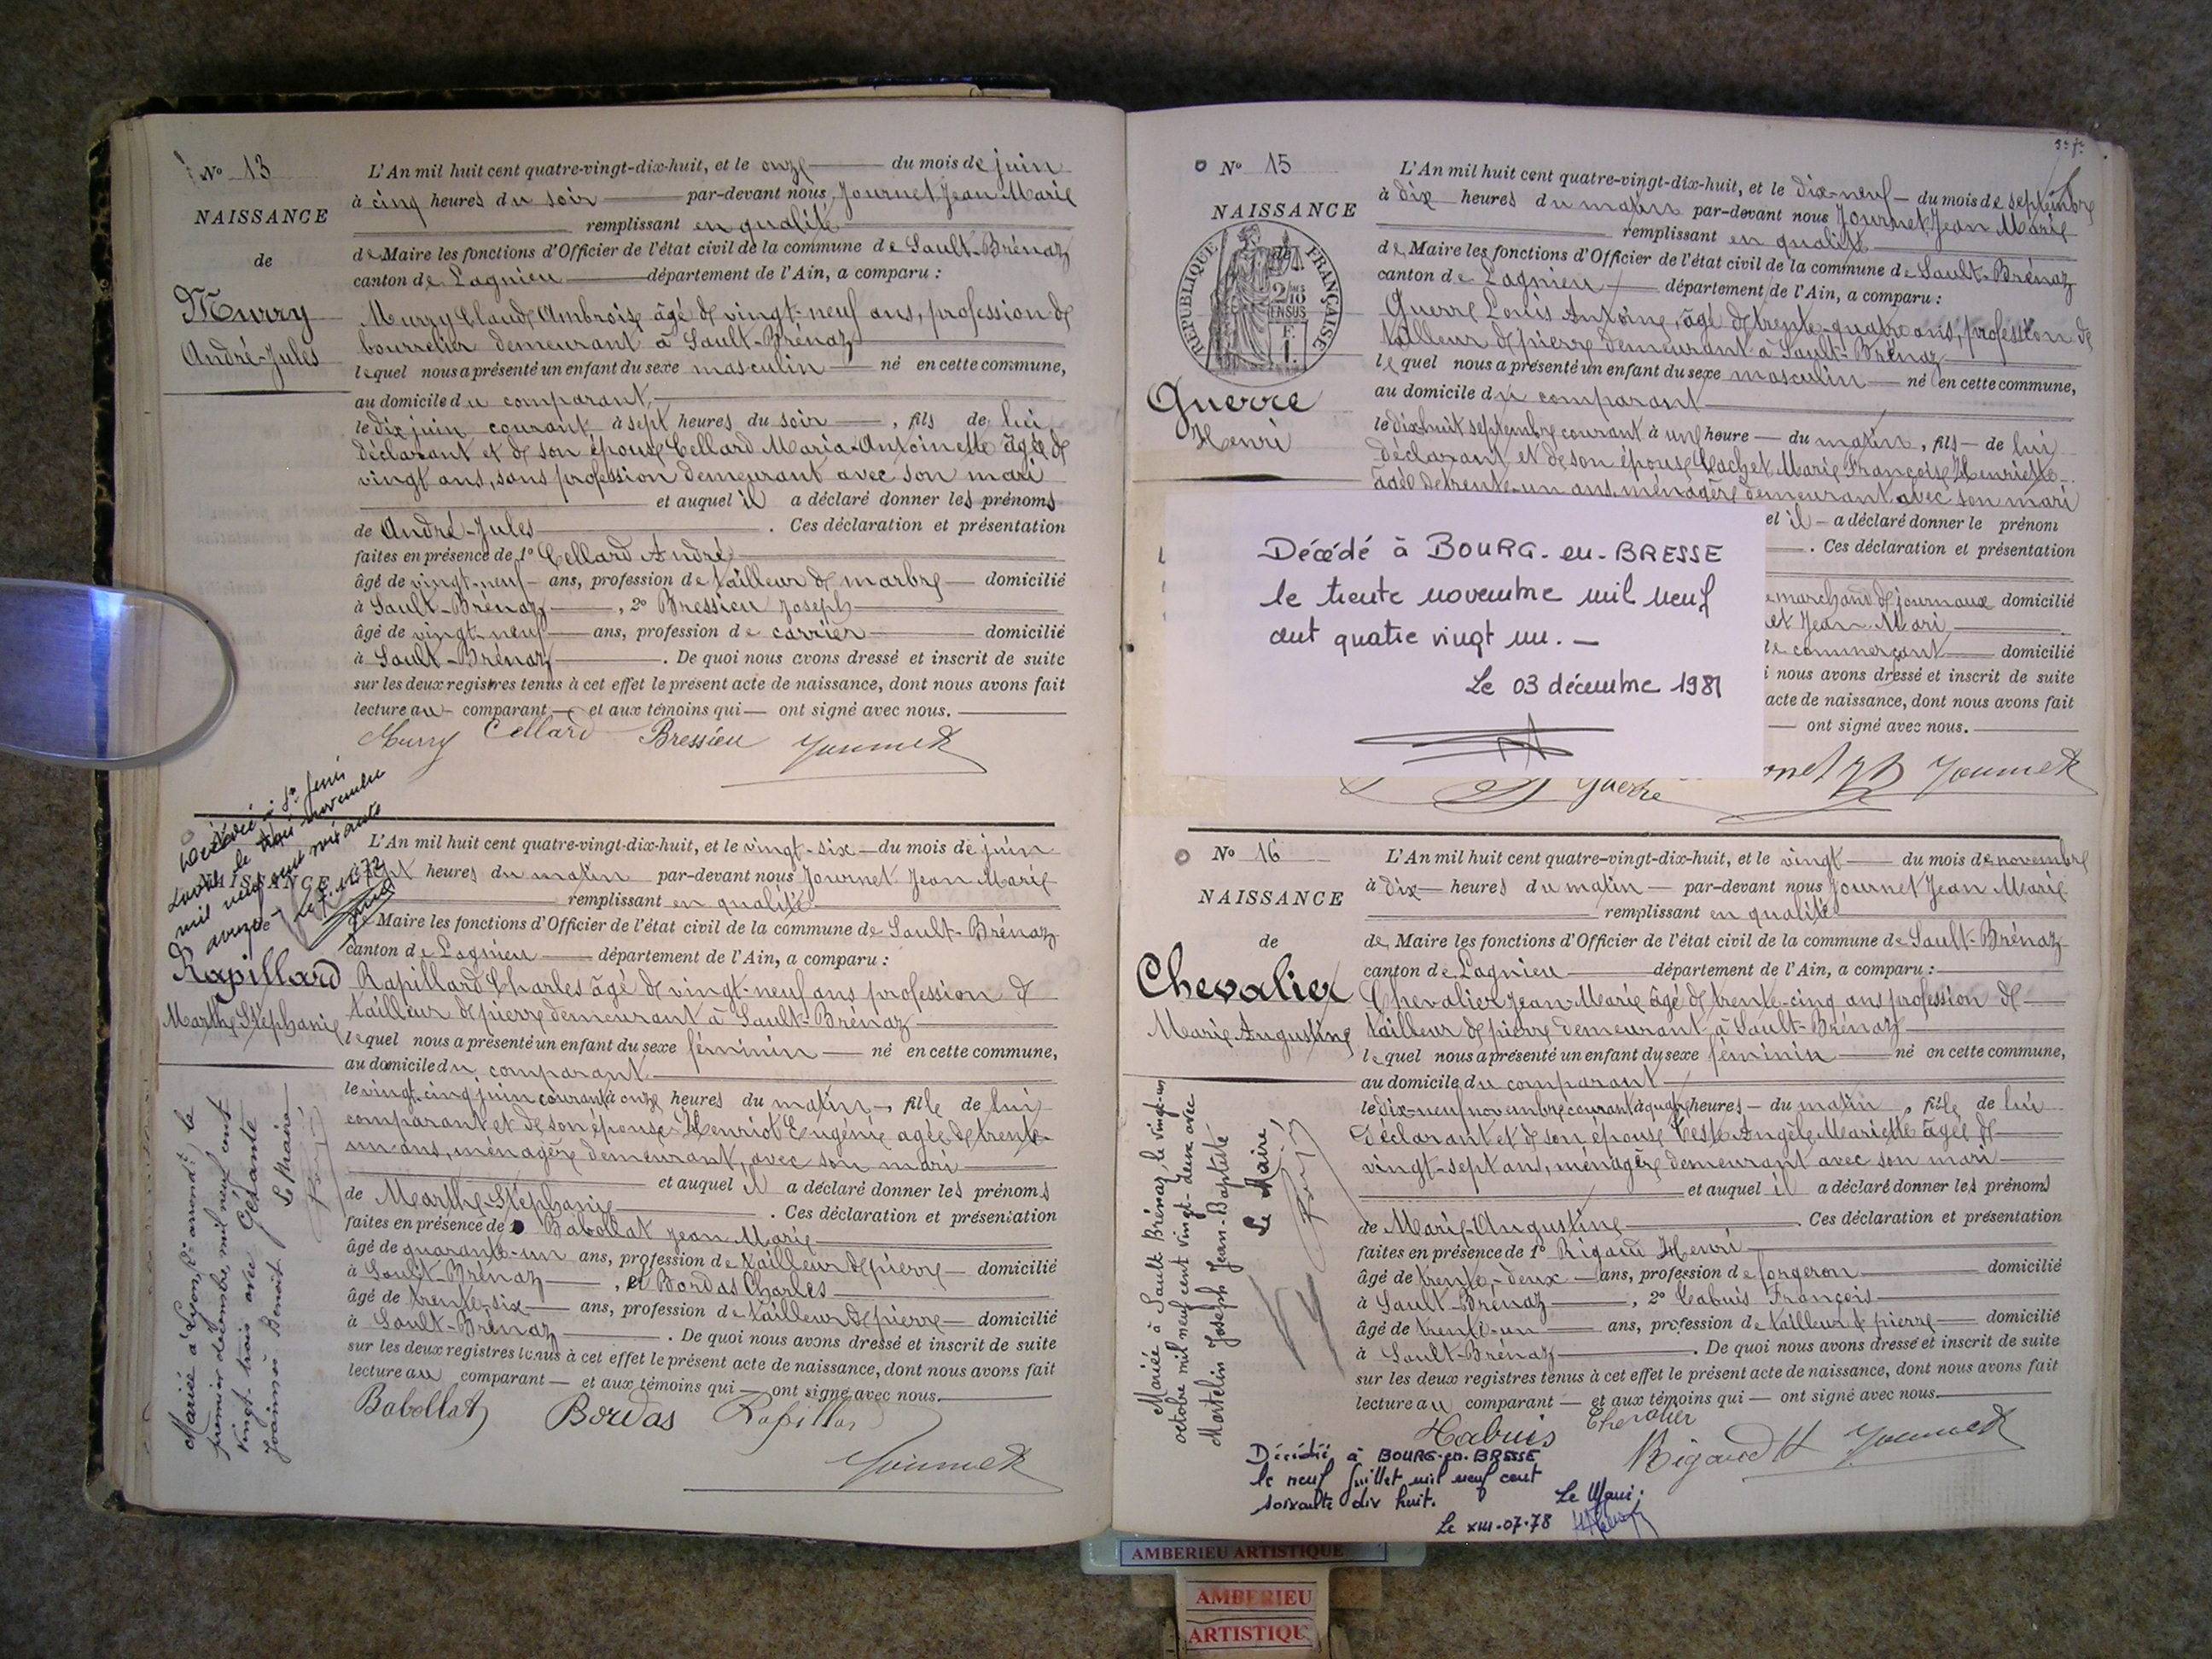 No 13
NAISSANCE
de
Murry
André-Jules
L'An mil huit cent quatre-vingt-dix-huit, et le onze du mois de juin
à cinq heures du soir par-devant nous Journet Jean Marie
remplissant en qualité
de Maire les fonctions d'Officier de l'état civil de la commune de Sault-Brénaz
canton de Lagnieu département de l'Ain, a comparu :
Murry Claude Ambroise âgé de vingt-neuf ans, profession de
bourrelier demeurant à Sault-Brénaz
lequel nous a présenté un enfant du sexe masculin né en cette commune,
au domicile du comparant,
le dix juin courant à sept heures du soir, fils de lui
déclarant et de son épouse Cellard Maria-Antoinette âgée de
vingt ans, sans profession demeurant avec son mari
et auquel il a déclaré donner les prénoms
de André-Jules. Ces déclaration et présentation
faites en présence de 1o Cellard André
âgé de vingt-neuf ans, profession de tailleur de marbre domicilié
à Sault-Brénaz, 2o Bressieu Joseph
âgé de vingt-neuf ans, profession de carrier domicilié
à Sault-Brénaz. De quoi nous avons dressé et inscrit de suite
sur les deux registres tenus à cet effet le présent acte de naissance, dont nous avons fait
lecture au comparant et aux témoins qui ont signé avec nous.
Murry Cellard Bressieu Journet
novembre
mil neuf cent soixante
NAISSANCE
Rapillard
Marthe Stéphanie
L'An mil huit cent quatre-vingt-dix-huit, et le vingt-six du mois de juin
heures du matin par-devant nous Journet Jean Marie
remplissant en qualité
de Maire les fonctions d'Officier de l'état civil de la commune de Sault-Brénaz
canton de Lagnieu département de l'Ain, a comparu :
Rapillard Charles âgé de vingt-neuf ans profession de
tailleur de pierre demeurant à Sault-Brénaz
lequel nous a présenté un enfant du sexe féminin né en cette commune,
au domicile du comparant
le vingt-cinq juin courant à onze heures du matin, fille de lui
comparant et de son épouse Henriot Eugénie agée de trente-
un ans, ménagère demeurant avec son mari
et auquel il a déclaré donner les prénoms
de Marthe-Stéphanie. Ces déclaration et présentation
faites en présence de Babollat Jean Marie
âgé de quarante-un ans, profession de tailleur de pierre domicilié
à Sault-Brénaz, et Bordas Charles
âgé de trente-six ans, profession de tailleur de pierre domicilié
à Sault-Brénaz. De quoi nous avons dressé et inscrit de suite
sur les deux registres tenus à cet effet le présent acte de naissance, dont nous avons fait
lecture au comparant et aux témoins qui ont signé avec nous.
Babollat Bordas Rapillard
Journet
Mariée à Lyon, 2e arrondt le
premier décembre, mil neuf cent
vingt-trois avec Gésante
Joannès Benoit
Le Maire
No 15
NAISSANCE
de
REPUBLIQUE FRANÇAISE
2/10
EN SUS
Guerre
Henri
L'An mil huit cent quatre-vingt-dix-huit, et le dix-neuf du mois de septembre
à dix heures du matin par-devant nous Journet Jean Marie
remplissant en qualité
de Maire les fonctions d'Officier de l'état civil de la commune de Sault-Brénaz
canton de Lagnieu département de l'Ain, a comparu :
Guerre Louis Antoine, âgé de trente-quatre ans, profession de
tailleur de pierre demeurant à Sault-Brénaz
lequel nous a présenté un enfant du sexe masculin né en cette commune,
au domicile du comparant
le dix huit septembre courant à une heure du matin, fils de lui
déclarant et de son épouse Cachet Marie Françoise Henriette
âgée de trente-un ans, ménagère demeurant avec son mari
el il a déclaré donner le prénom
. Ces déclaration et présentation
marchand de journaux domicilié
et Jean Mari
de commerçant domicilié
i nous avons dressé et inscrit de suite
acte de naissance, dont nous avons fait
ont signé avec nous.
Guerre Journet
Décédé à BOURG-en-BRESSE
le trente novembre mil neuf
cent quatre vingt un. —
Le 03 décembre 1981
No 16
NAISSANCE
de
Chevalier
Marie Augustine
L'An mil huit cent quatre-vingt-dix-huit, et le vingt du mois de novembre
à dix heures du matin par-devant nous Journet Jean Marie
remplissant en qualité
de Maire les fonctions d'Officier de l'état civil de la commune de Sault-Brénaz
canton de Lagnieu département de l'Ain, a comparu :
Chevalier Jean Marie âgé de trente-cinq ans profession de
tailleur de pierre demeurant à Sault-Brénaz
lequel nous a présenté un enfant du sexe féminin né en cette commune,
au domicile du comparant
le dix-neuf novembre courant à quatre heures du matin, fille de lui
déclarant et de son épouse Teste Angèle Mariette âgée de
vingt-sept ans, ménagère demeurant avec son mari
et auquel il a déclaré donner les prénoms
de Marie-Augustine. Ces déclaration et présentation
faites en présence de 1o Rigaud Henri
âgé de trente-deux ans, profession de forgeron domicilié
à Sault-Brénaz, 2o Cabuis François
âgé de trente-un ans, profession de tailleur de pierre domicilié
à Sault-Brénaz. De quoi nous avons dressé et inscrit de suite
sur les deux registres tenus à cet effet le présent acte de naissance, dont nous avons fait
lecture au comparant et aux témoins qui ont signé avec nous.
Cabuis Chevalier
Rigaud H Journet
Mariée à Sault Brénaz, le vingt-un
octobre mil neuf cent vingt-deux avec
Martelin Joseph Jean-Baptiste
Le Maire,
Décédée à BOURG-en-BRESSE
le neuf Juillet mil neuf cent
soixante dix huit.
Le Maire.
Le XIII-07-78
AMBERIEU ARTISTIQUE
AMBERIEU
ARTISTIQU